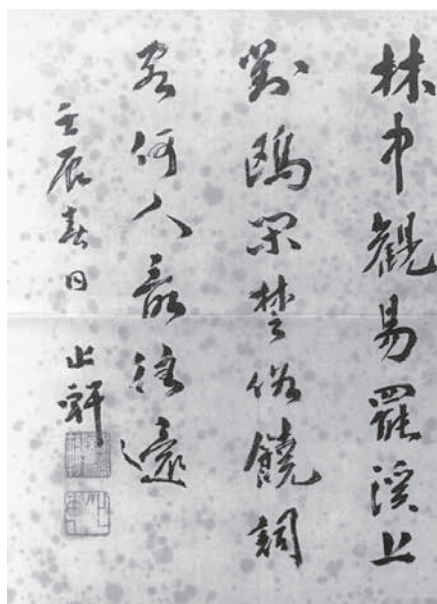 林中觀易罷溪上
對鷗閑楚俗饒詞
客何人最往還
壬辰春日 止軒